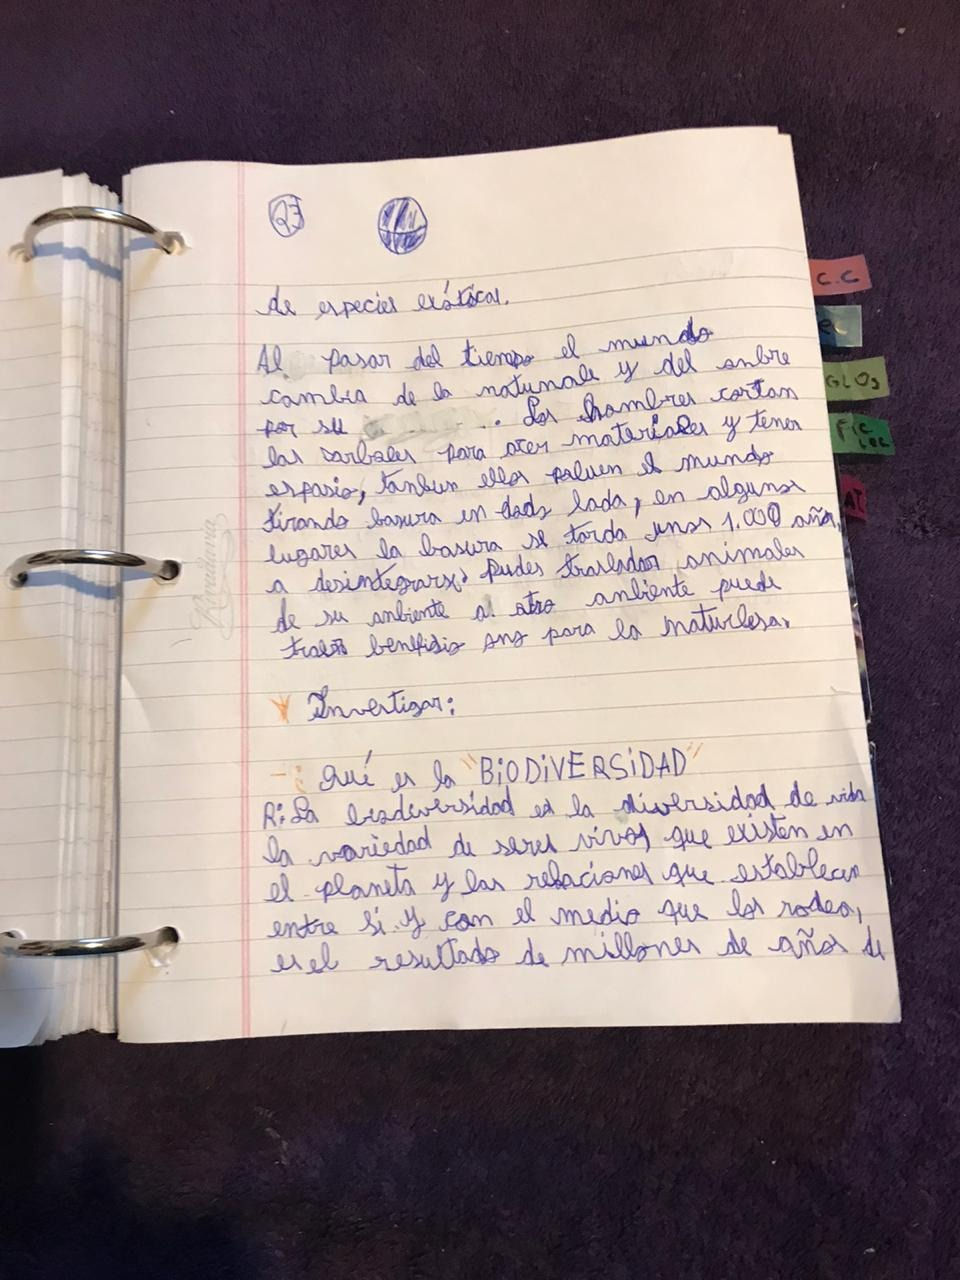 23
de especies exóticas.
Al pasar del tiempo el mundo
cambia de la naturnale y del onbre
por su ... Los hombres cortan
las sarboles para acer materiales y tener
espasio, tanbien ellos poluen el mundo
tirando basura en todo lado, en algunos
lugares la basura se tarda unos 1.000 años,
a desintegrarse. pudes trasladar animales
de su anbiente al otro ambiente puede
traer benifisio ano para la naturlesa.
Investigar:
-: Qué es la "BiODiVERSiDAD"
R: La biodiversidad es la diversidad de vida
la variedad de seres vivos que existen en
el planeta y las relaciones que establecen
entre sí y con el medio que los rodea,
es el resultado de millones de años de
Rivadavia
C.C
GLOS
Fic
Lec
AT